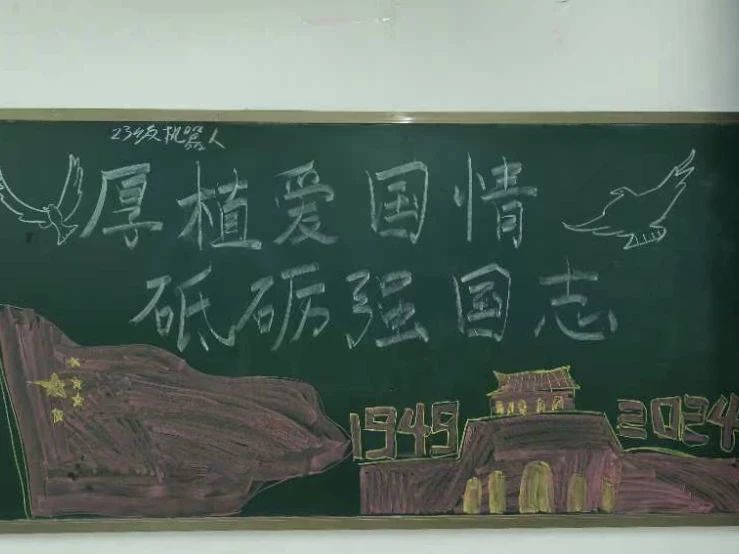 23级机器人
厚植爱国情
砥砺强国志
1949 2024